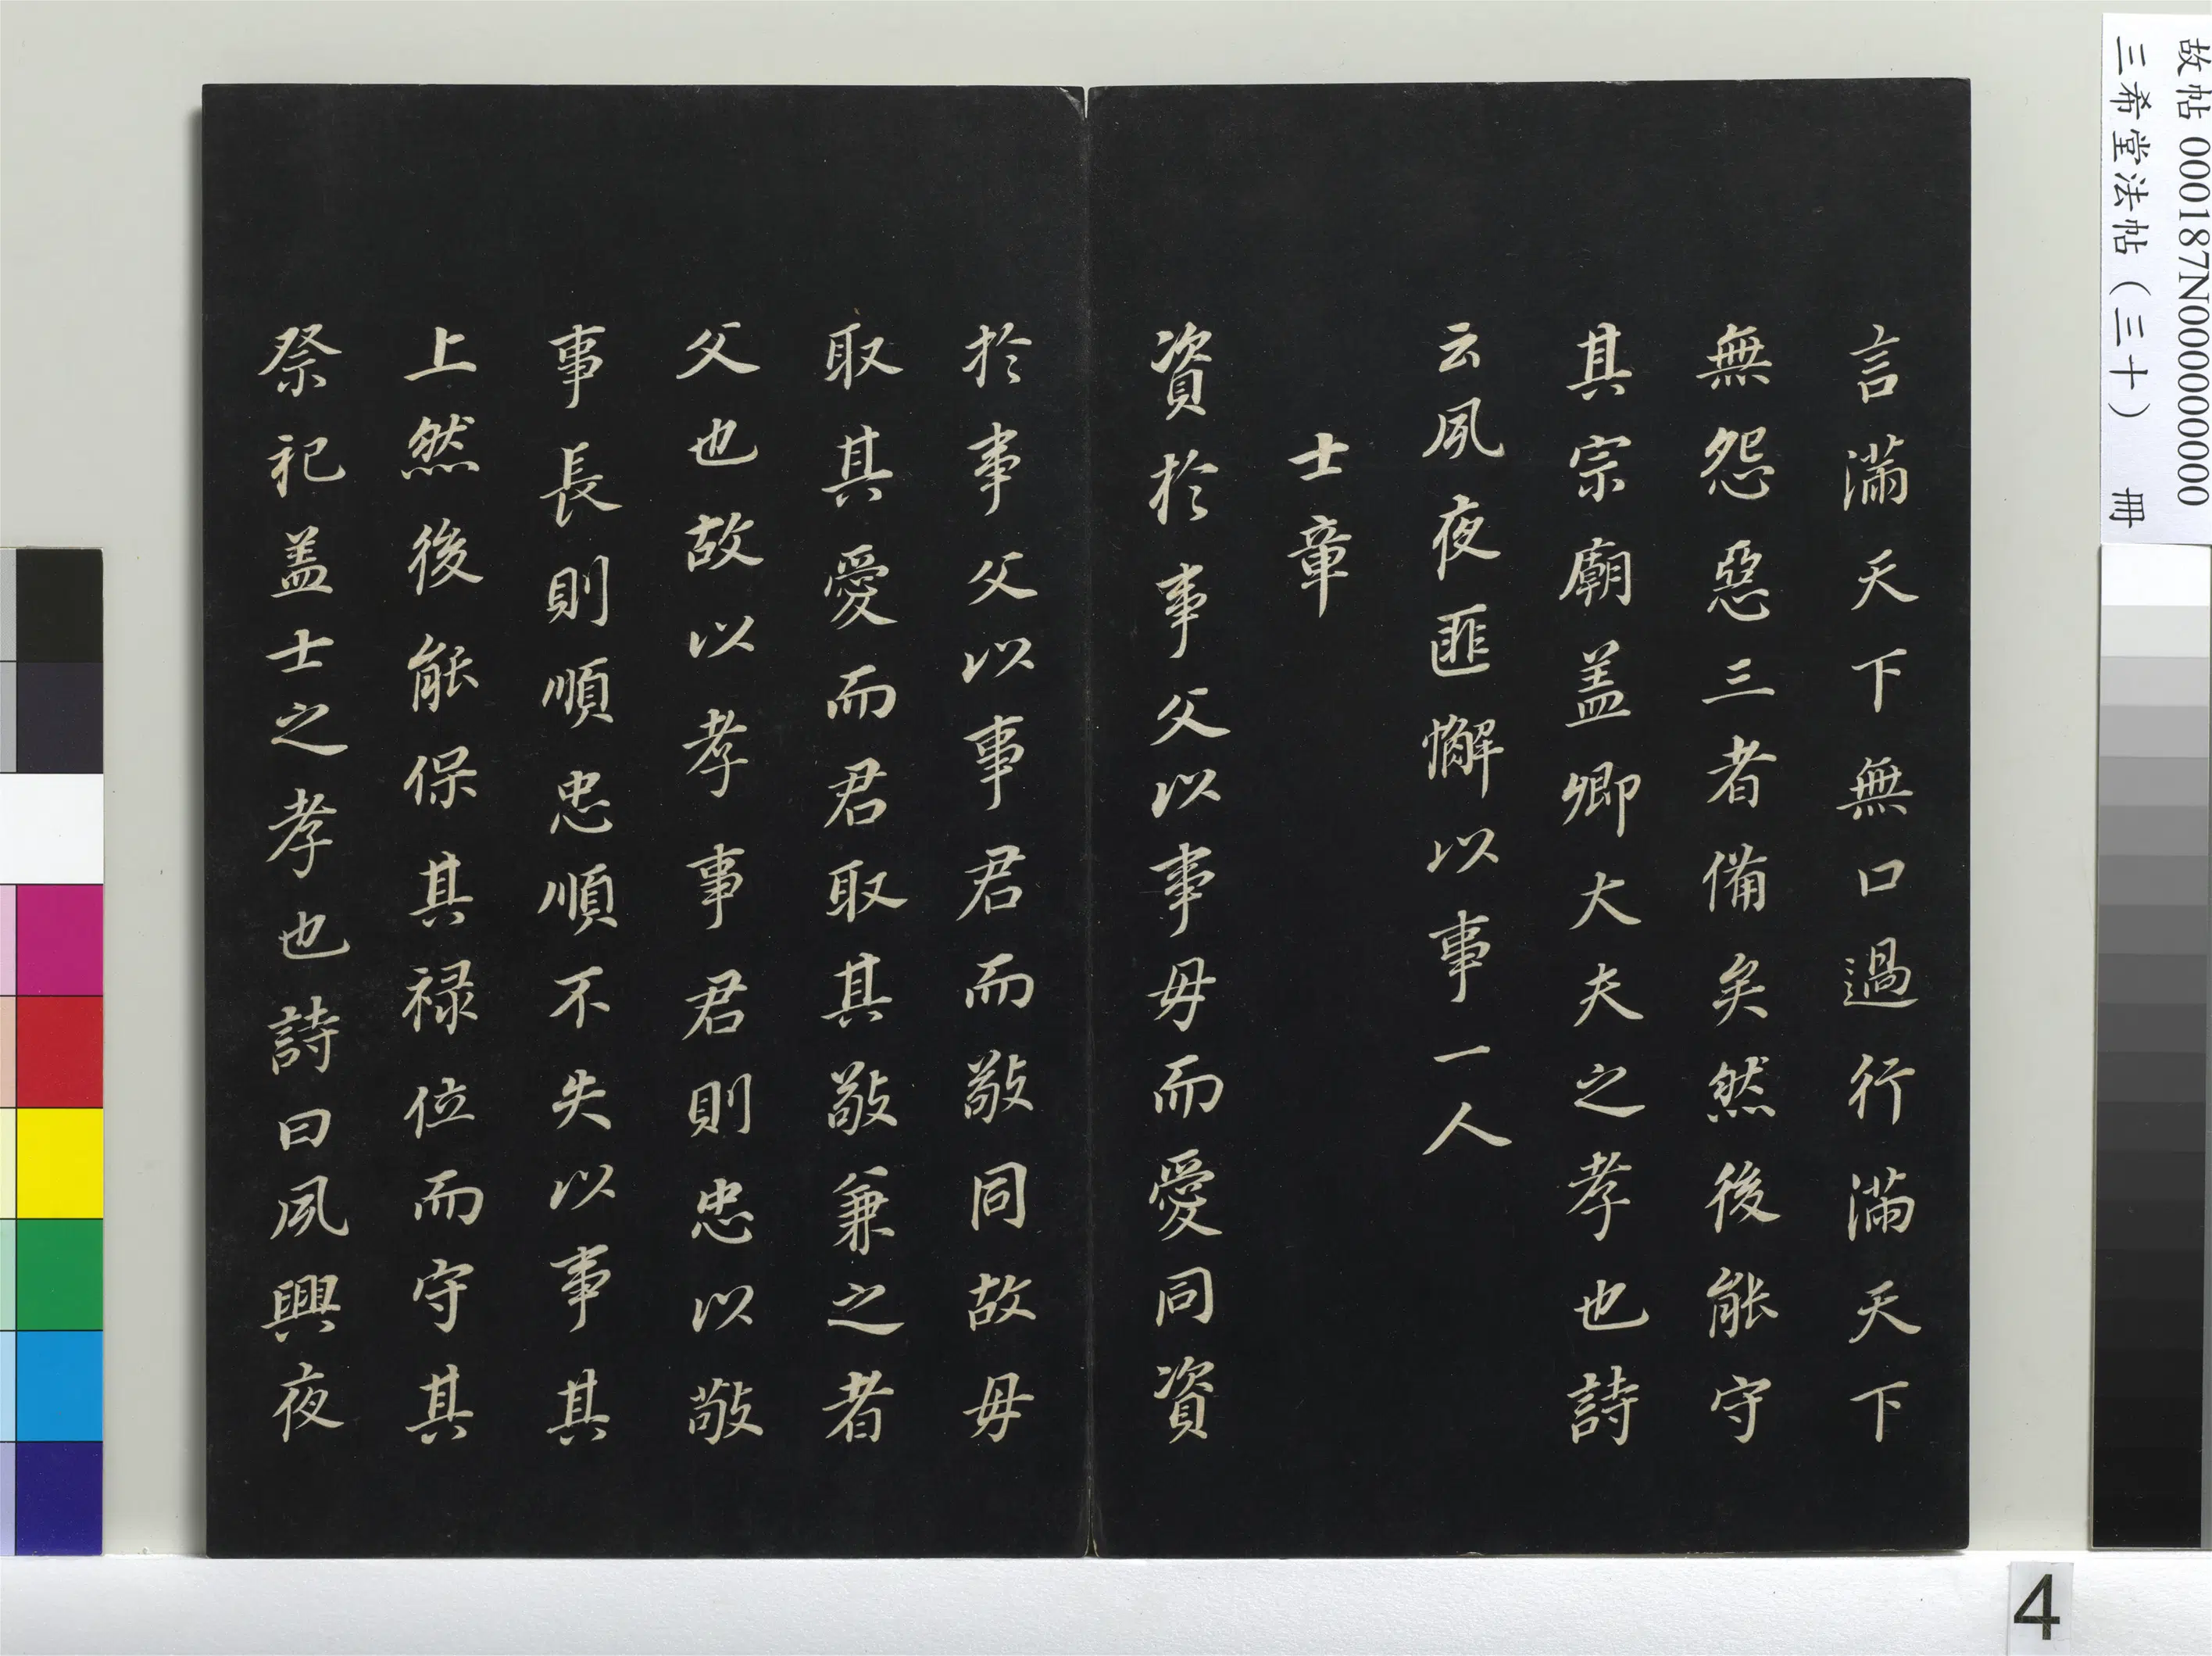 故帖 000187N000000000
三希堂法帖（三十） 冊
言滿天下無口過行滿天下
無怨惡三者備矣然後能守
其宗廟盖卿大夫之孝也詩
云夙夜匪懈以事一人
士章
資於事父以事母而愛同資
於事父以事君而敬同故母
取其愛而君取其敬兼之者
父也故以孝事君則忠以敬
事長則順忠順不失以事其
上然後能保其禄位而守其
祭祀盖士之孝也詩曰夙興夜
4